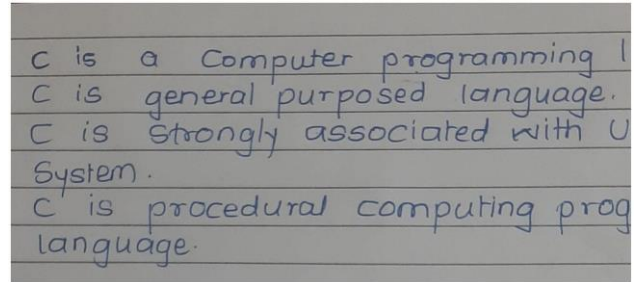 C is a Computer programming l
C is general purposed language.
C is strongly associated with U
System.
C is procedural computing prog
language.